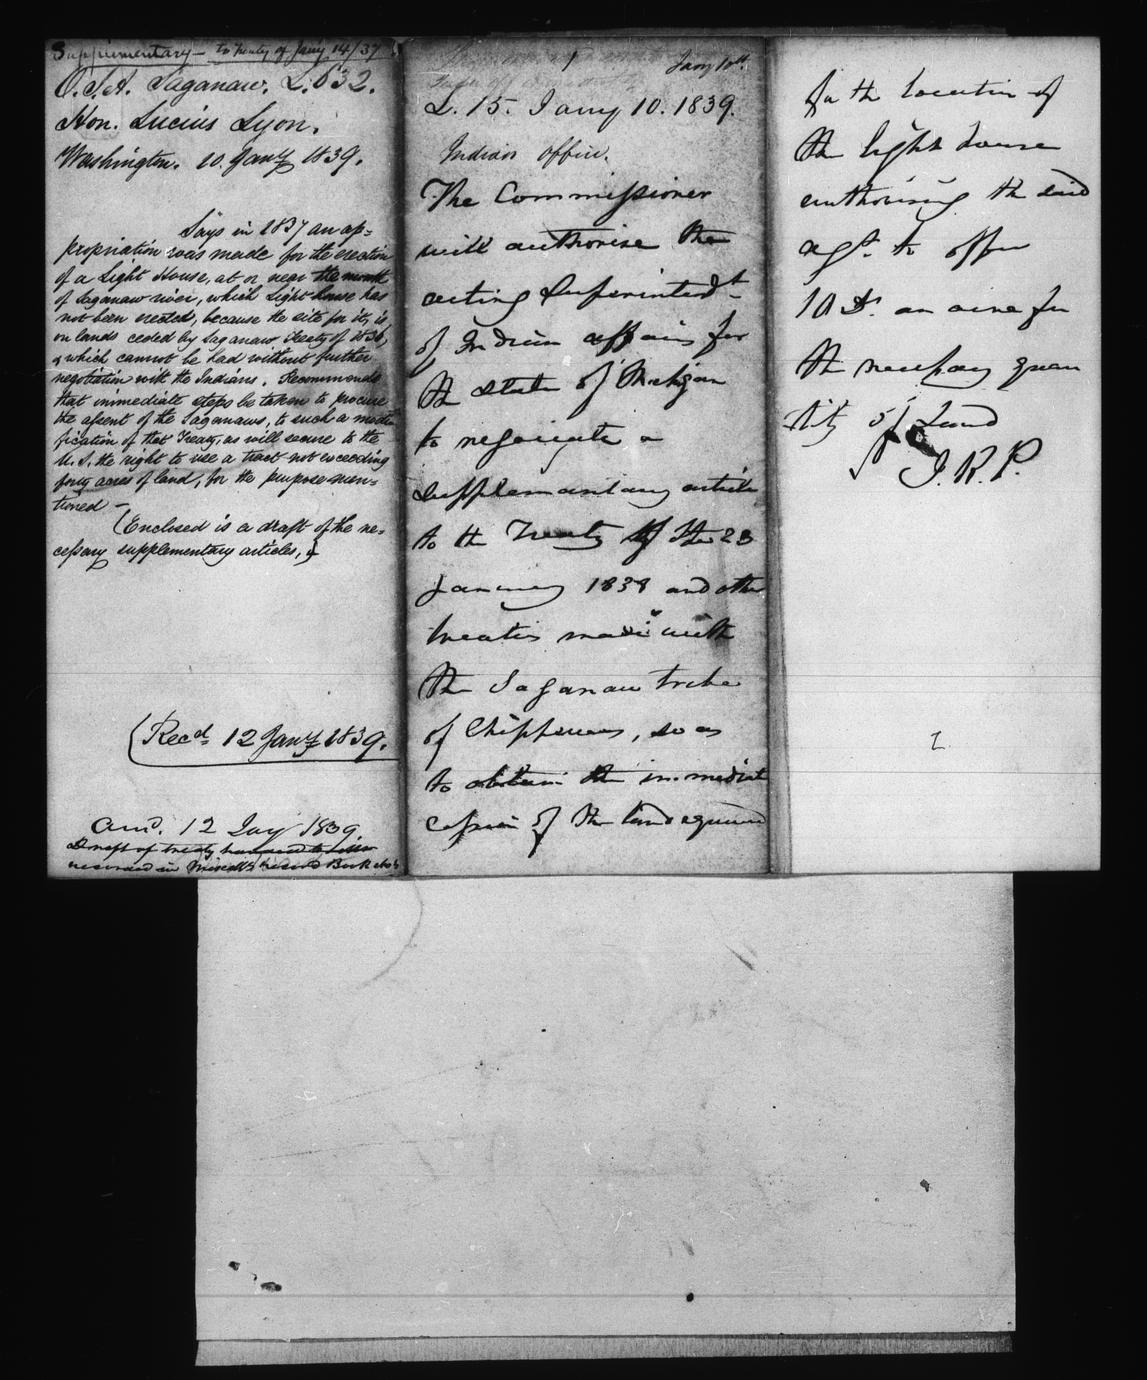 Supplementary — to Treaty of Jany 14/37
O.I.A. Saganaw. L.632.
Hon. Lucius Lyon.
Washington. 10. Jany 1839.
Says in 1837 an ap=
propriation was made for the erection
of a Light House, at or near the mouth
of Saganaw river, which Light house has
not been erected, because the site for it, is
on lands ceded by Saganaw treaty of 1836,
& which cannot be had without further
negotiation with the Indians. Recommends
that immediate steps be taken to procure
the assent of the Saganaws, to such a modi
fication of that Treaty, as will secure to the
U.S. the right to use a tract not exceeding
forty acres of land, for the purpose men=
tioned —
(Enclosed is a draft of the ne=
cessary supplementary articles,)
(Recd. 12 Jany 1839.
Ansd. 12 Jay 1839.
Draft of treaty
recorded in Record Book
1
Jany 10th
L. 15. Jany 10. 1839.
Indian office.
The Commissioner
will authorise the
acting Superintdt
of Indian affairs for
the state of Michigan
to negociate a
supplementary article
to the Treaty of the 23
January 1838 and other
treaties made with
the Saganaw tribe
of Chippewas, so as
to obtain the immediate
cession of the land required
for the location of
the light house
authorising the said
agt. to offer
10 Ds. an acre for
the necessary quan
tity of Land
J. R. P.
2